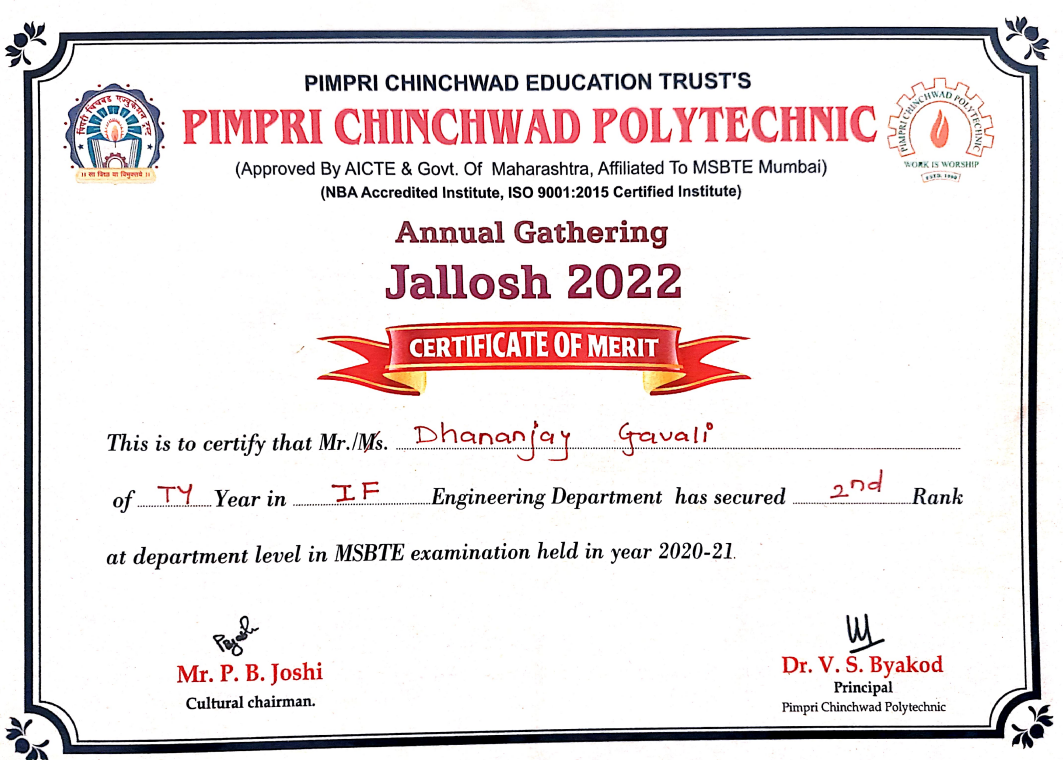 PIMPRI CHINCHWAD EDUCATION TRUST'S
PIMPRI CHINCHWAD POLYTECHNIC
(Approved By AICTE & Govt. Of Maharashtra, Affiliated To MSBTE Mumbai)
(NBA Accredited Institute, ISO 9001:2015 Certified Institute)
पिंपरी चिंचवड एज्युकेशन ट्रस्ट
।। सा विद्या या विमुक्तये ।।
PIMPRI CHINCHWAD POLYTECHNIC
WORK IS WORSHIP
ESTD. 1990
Annual Gathering
Jallosh 2022
CERTIFICATE OF MERIT
This is to certify that Mr./Ms. Dhananjay Gavali
of TY Year in IF Engineering Department has secured 2nd Rank
at department level in MSBTE examination held in year 2020-21.
Mr. P. B. Joshi
Cultural chairman.
Dr. V. S. Byakod
Principal
Pimpri Chinchwad Polytechnic